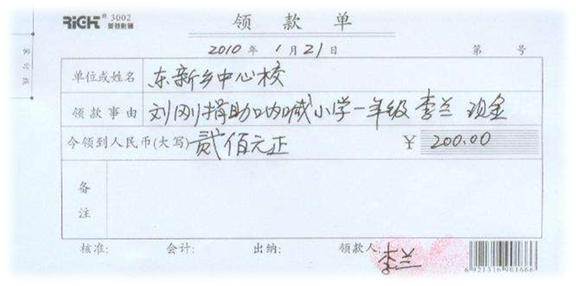 RiCH® 3002
领款单
2010年1月21日 第 号
单位或姓名 东新乡中心校
领款事由 刘刚捐助呐喊小学一年级 李兰 现金
今领到人民币(大写) 贰佰元正 ¥ 200.00
备注
核准: 会计: 出纳: 领款人: 李兰
6 921316 901666